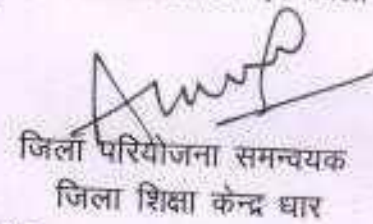 जिला परियोजना समन्वयक
जिला शिक्षा केन्द्र धार